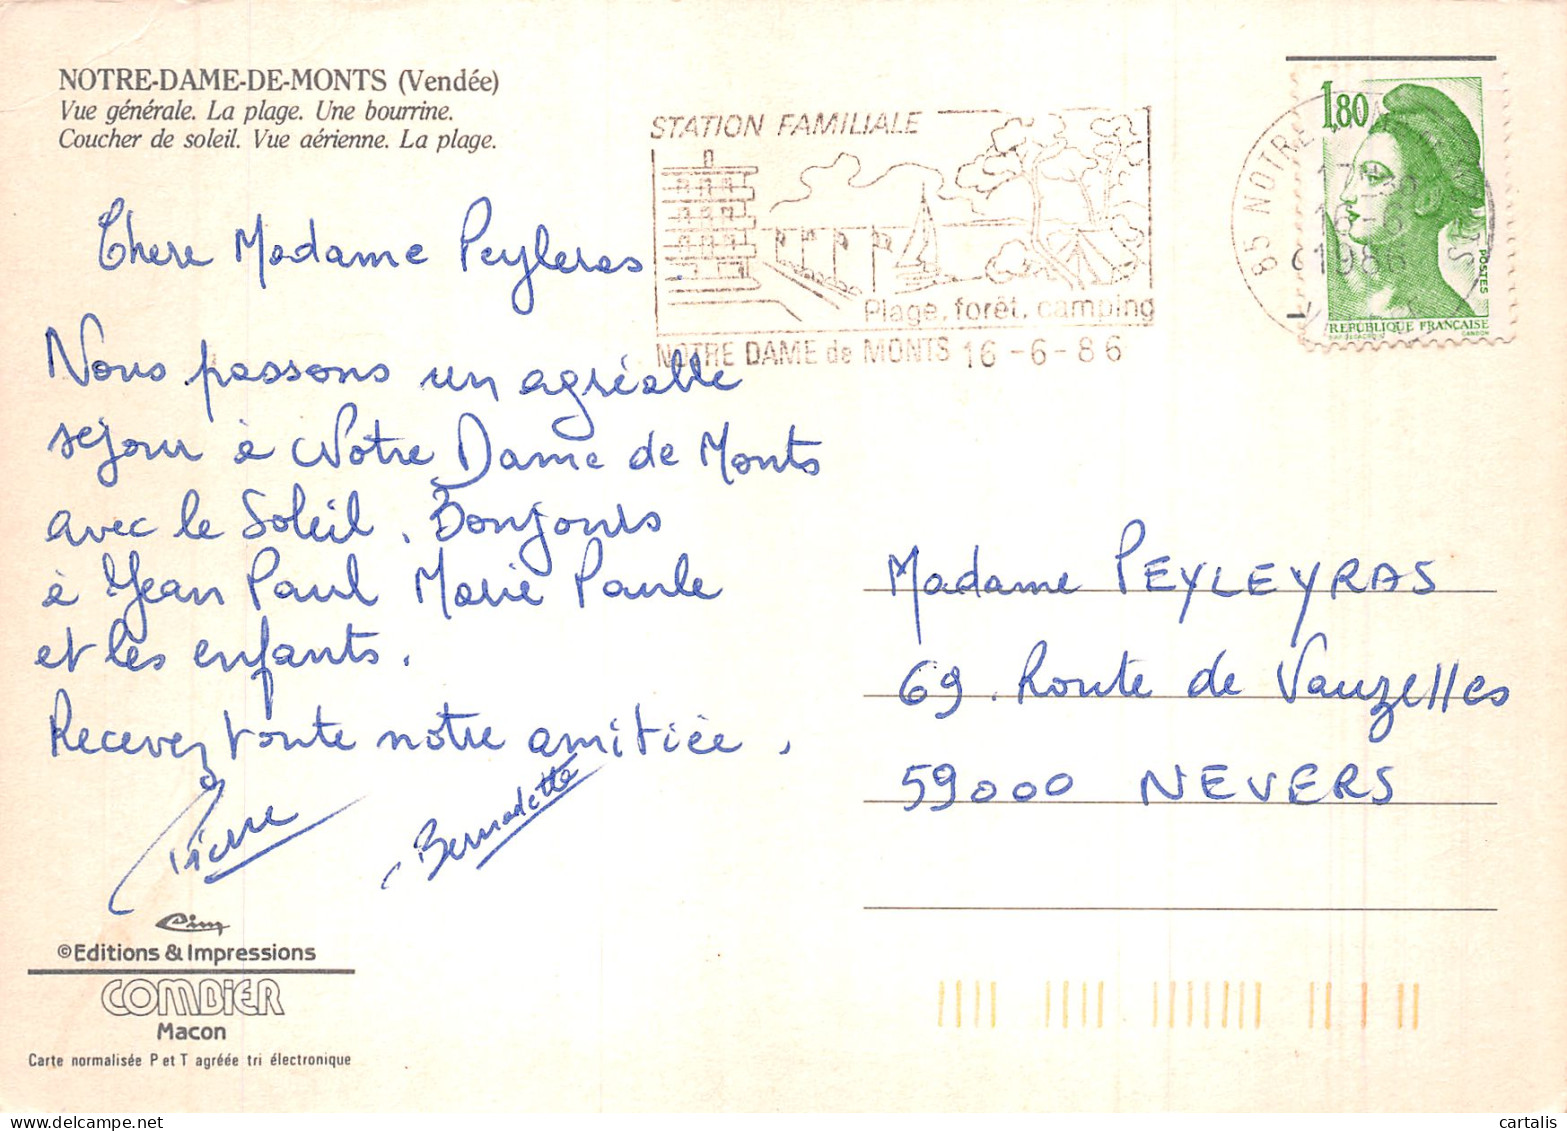 NOTRE-DAME-DE-MONTS (Vendée)
Vue générale. La plage. Une bourrine.
Coucher de soleil. Vue aérienne. La plage.
STATION FAMILIALE
Plage, forêt, camping
NOTRE DAME de MONTS 16-6-86
1,80
85 NOTRE
16-6
1986
POSTES
REPUBLIQUE FRANCAISE
GANDON
Chere Madame Peyleras
Nous passons un agréable
séjour à Notre Dame de Monts
avec le Soleil. Bonjours
à Jean Paul Marie Paule
et les enfants.
Recevez toute notre amitiée.
Pierre
Bernadette
Madame PEYLEYRAS
69. Route de Vauzelles
59000 NEVERS
Cim
©Editions & Impressions
COMBIER
Macon
Carte normalisée P et T agréée tri électronique